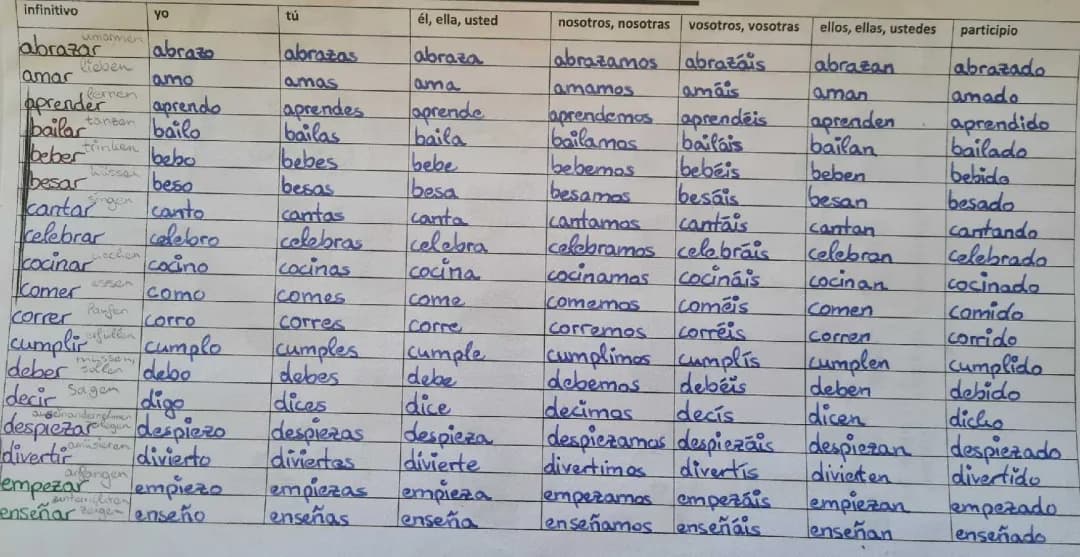 infinitivo yo tú él, ella, usted nosotros, nosotras vosotros, vosotras ellos, ellas, ustedes participio
abrazar umarmen abrazo abrazas abraza abrazamos abrazáis abrazan abrazado
amar lieben amo amas ama amamos amáis aman amado
aprender lernen aprendo aprendes aprende aprendemos aprendéis aprenden aprendido
bailar tanzen bailo bailas baila bailamos bailáis bailan bailado
beber trinken bebo bebes bebe bebemos bebéis beben bebido
besar küssen beso besas besa besamos besáis besan besado
cantar singen canto cantas canta cantamos cantáis cantan cantando
celebrar celebro celebras celebra celebramos celebráis celebran celebrado
cocinar kochen cocino cocinas cocina cocinamos cocináis cocinan cocinado
comer essen como comes come comemos coméis comen comido
correr corro corres corre corremos corréis corren corrido
cumplir erfüllen cumplo cumples cumple cumplimos cumplís cumplen cumplido
deber müssen, sollen debo debes debe debemos debéis deben debido
decir sagen digo dices dice decimos decís dicen dicho
despiezar auseinandernehmen despiezo despiezas despieza despiezamos despiezáis despiezan despiezado
divertir amüsieren divierto diviertas divierte divertimos divertís divierten divertido
empezar anfangen empiezo empiezas empieza empezamos empezáis empiezan empezado
enseñar zeigen enseño enseñas enseña enseñamos enseñáis enseñan enseñado